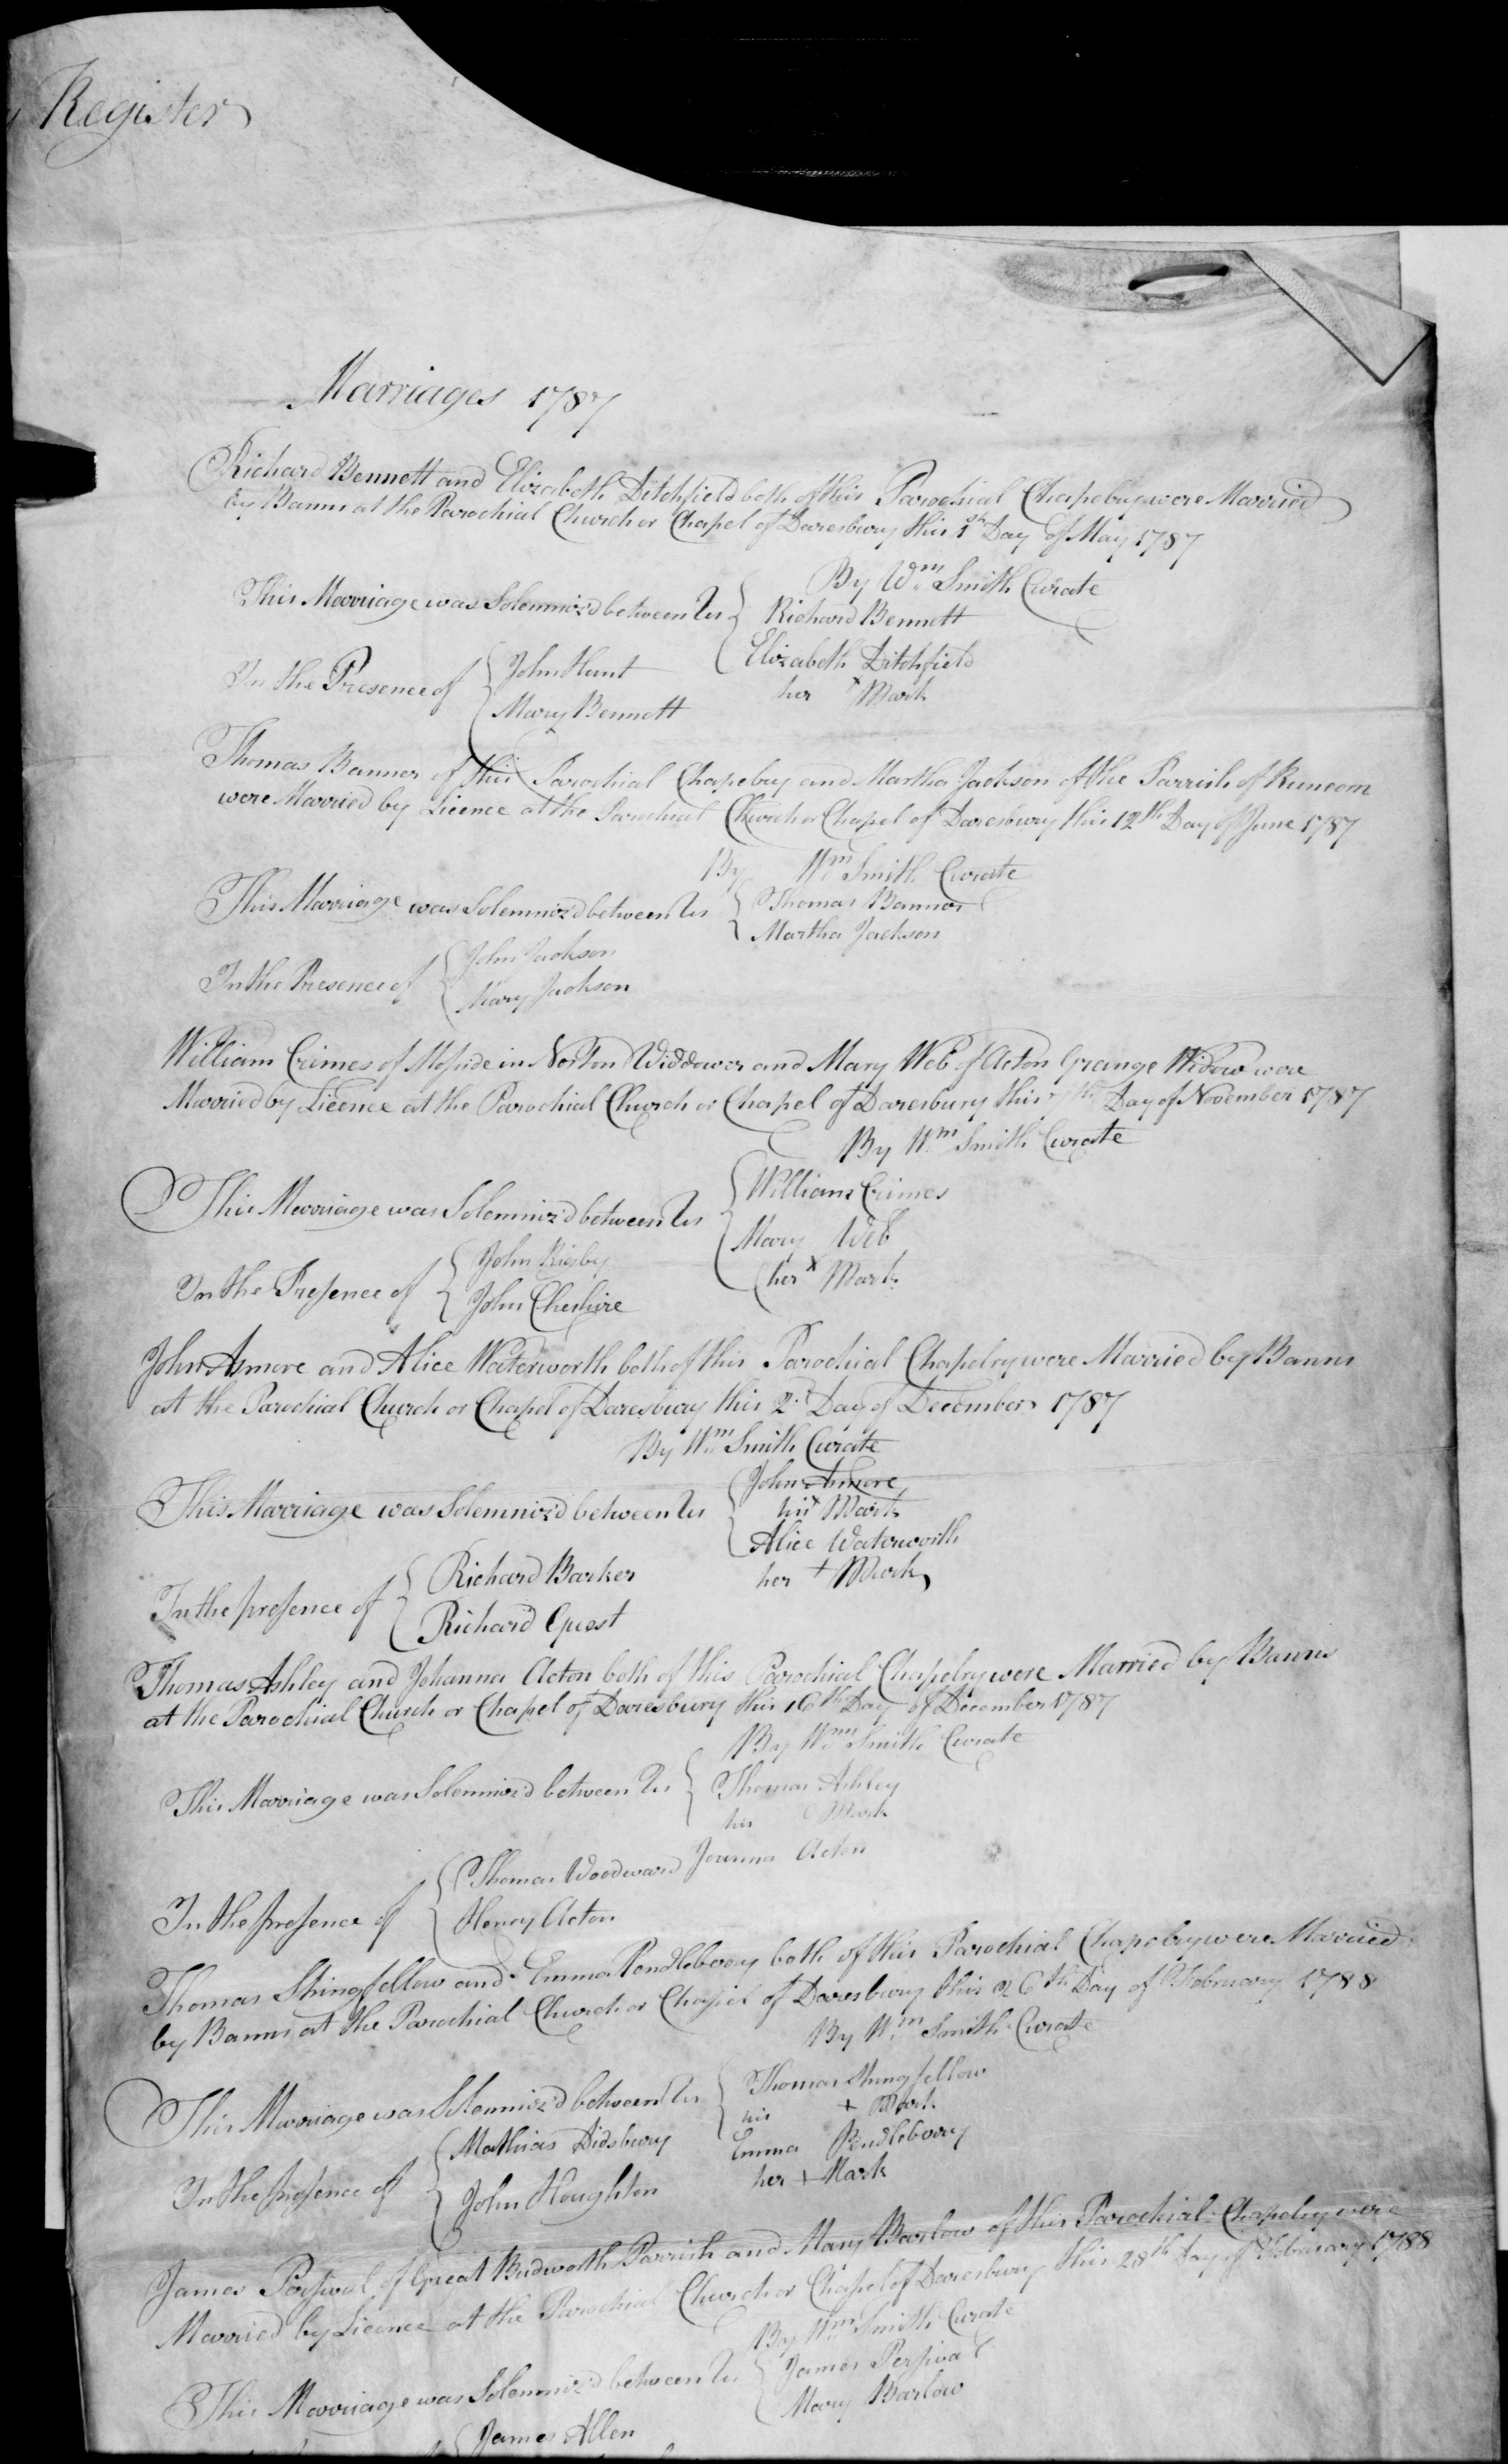 Register
Marriages 1787
Richard Bennett and Elizabeth Ditchfield both of this Parochial Chapelry were Married
by Banns at the Parochial Church or Chapel of Daresbury this Day of May 1787
By Wm Smith Curate
This Marriage was Solemniz'd between Us { Richard Bennett
Elizabeth Ditchfield
her x Mark
In the Presence of { John Hunt
Mary Bennett
Thomas Banner of this Parochial Chapelry and Martha Jackson of the Parrish of Runcorn
were Married by Licence at the Parochial Church or Chapel of Daresbury this 12th Day of June 1787
By Wm Smith Curate
This Marriage was Solemniz'd between Us { Thomas Banner
Martha Jackson
In the Presence of { John Jackson
Mary Jackson
William Crimes of Moſside in Norton Widdower and Mary Web of Acton Grange Widow were
Married by Licence at the Parochial Church or Chapel of Daresbury this Day of November 1787
By Wm Smith Curate
This Marriage was Solemniz'd between Us { William Crimes
Mary Web
her x Mark
In the Preſence of { John Rigby
John Cheshire
John Asmore and Alice Waterworth both of this Parochial Chapelry were Married by Banns
at the Parochial Church or Chapel of Daresbury this 2d Day of December 1787
By Wm Smith Curate
This Marriage was Solemniz'd between Us { John Asmore
his x Mark
Alice Waterworth
her + Mark
In the preſence of { Richard Barker
Richard Guest
Thomas Ashley and Johanna Acton both of this Parochial Chapelry were Married by Banns
at the Parochial Church or Chapel of Daresbury this 16th Day of December 1787
By Wm Smith Curate
This Marriage was Solemniz'd between Us { Thomas Ashley
his Mark
Joanna Acton
In the preſence of { Thomas Woodward
Henry Acton
Thomas Stringfellow and Emma Pendlebury both of this Parochial Chapelry were Married
by Banns at the Parochial Church or Chapel of Daresbury this 26th Day of February 1788
By Wm Smith Curate
This Marriage was Solemniz'd between Us { Thomas Stringfellow
his + Mark
Emma Pendlebury
her + Mark
In the preſence of { Mathias Didsbury
John Houghton
James Perſival of Great Budworth Parrish and Mary Barlow of this Parochial Chapelry were
Married by Licence at the Parochial Church or Chapel of Daresbury this 28th Day of February 1788
By Wm Smith Curate
This Marriage was Solemniz'd between Us { James Perſival
Mary Barlow
James Allen